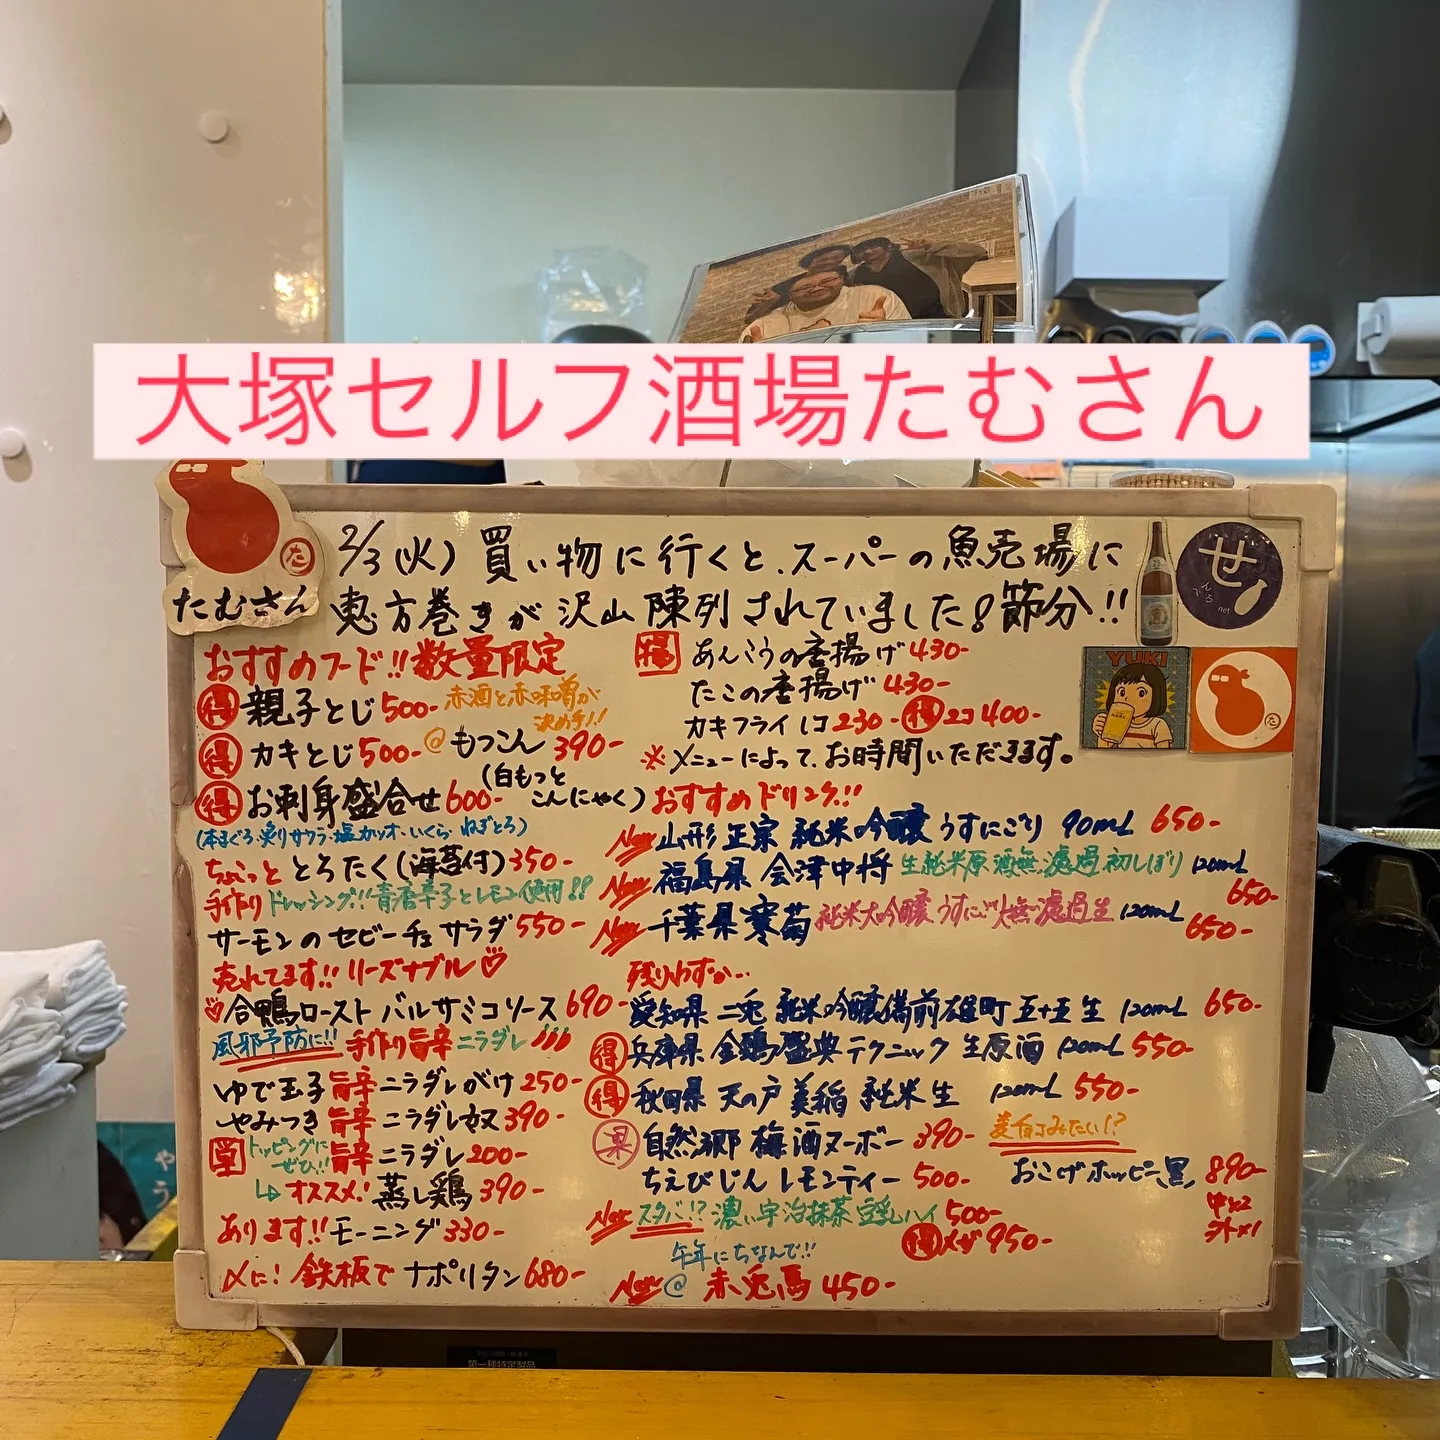 大塚セルフ酒場たむさん
た
たむさん
2/3(火)買い物に行くと、スーパーの魚売場に
恵方巻きが沢山陳列されていました!節分!!
せ
んべろ
net
YUKI
た
おすすめフード!!数量限定
得 親子とじ500-
赤酒と赤味噌が
決め手!!
得 カキとじ500-
@もつこん390-
(白もつと
こんにゃく)
得 お刺身盛合せ600-
(本まぐろ・炙りサワラ・塩カツオ・いくら・ねぎとろ)
ちょこっと とろたく(海苔付)350-
手作りドレッシング!!青唐辛子とレモン使用!!
サーモンのセビーチェサラダ550-
売れてます!!リーズナブル♡
♡合鴨ロースト バルサミコソース690-
風邪予防に!!手作り旨辛ニラダレ
ゆで玉子 旨辛ニラダレがけ250-
やみつき旨辛ニラダレ奴390-
トッピングに
ぜひ!!旨辛ニラダレ200-
↳オススメ!蒸し鶏390-
あります!!モーニング330-
〆に!鉄板でナポリタン680-
得 あんこうの唐揚げ430-
たこの唐揚げ430-
カキフライ1コ230- 得2コ400-
※メニューによって、お時間いただきます。
おすすめドリンク!!
New 山形正宗 純米吟醸うすにごり 90mL 650-
New 福島県 会津中将 生純米原酒無濾過初しぼり 120mL
650-
New 千葉県 寒菊 純米大吟醸うすにごり無濾過生 120mL 650-
残りわずか…
愛知県 二兎 純米吟醸備前雄町五十五生 120mL 650-
得 兵庫県 金鶏盛典 テクニック 生原酒 120mL 550-
得 秋田県 天の戸 美稲 純米生 120mL 550-
果 自然郷 梅酒ヌーボー 390-
ちえびじん レモンティー 500-
おこげホッピー、黒、890-
中×2
外×1
New スタバ!?濃い宇治抹茶豆乳ハイ500-
得メガ950-
午年にちなんで!!
New @赤兎馬450-